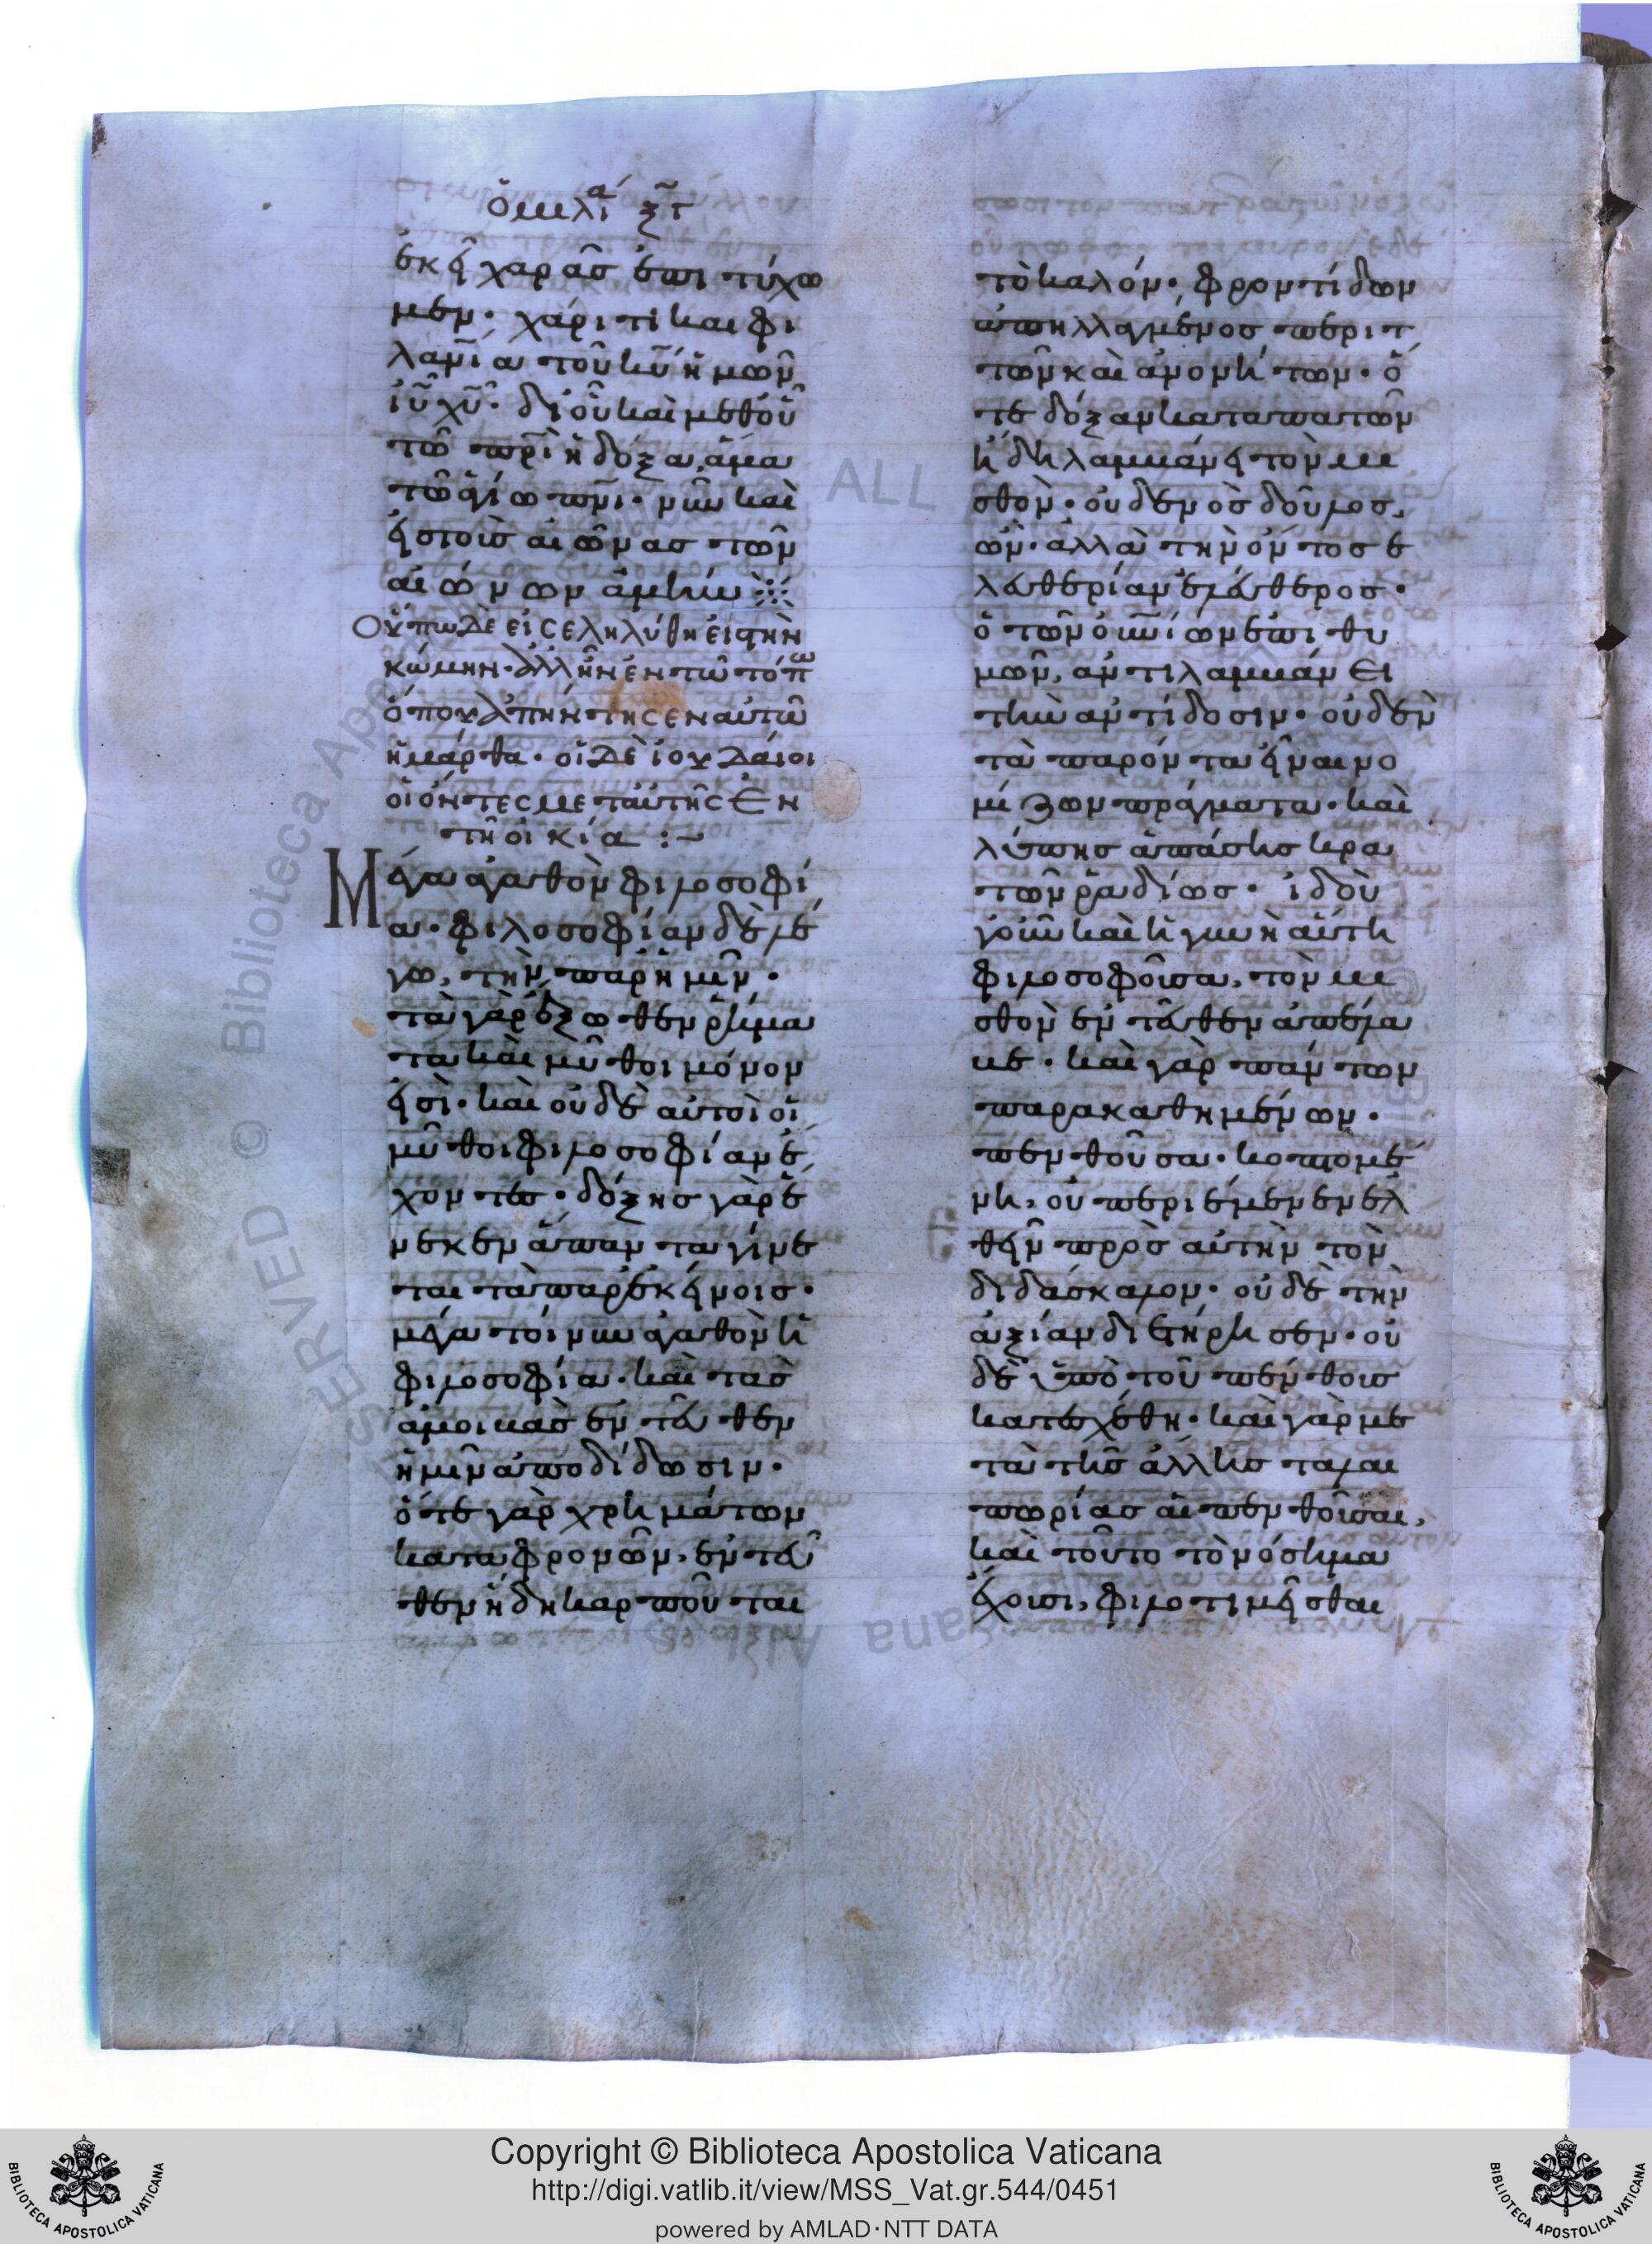 ὁμιλία ξγ
ἐκεῖ χαρᾶσ ἐπιτύχω
μεν· χάριτι καὶ φι
λανῖα τοῦ κῦ ἡμῶν
ἰῦ χῦ· δι οὗ καὶ μεθ οὗ
τῶ πρὶ ἡ δόξα, ἅμα
τῶ ἁγίω πνι· νῦν καὶ
εἰσ τοὺσ αἰῶνασ τῶν
αἰώνων ἀμήν
Οὔπω δὲ εἰσεληλύθη εἰς τὴν
κώμην· ἀλλ ἦν ἐν τῶ τόπω
ὅπου ἀπήντησεν αὐτῶ
ἡ μάρθα· οἱ δὲ ἰουδαίοι
οἱ ὄντες μετ αὐτῆς ἐν
τῆ οἰκία :~
Μέγα ἀγαθὸν φιλοσοφί
α· φιλοσοφίαν δὲ λέ
γω, τὴν παρ ἡμῖν·
τὰ γὰρ ἔξωθεν ῥήμα
τα καὶ μῦθοι μόνον
εἰσὶ· καὶ οὐδὲ αὐτοὶ οἱ
μῦθοι φιλοσοφίαν ἔ
χοντεσ· δόξησ γὰρ ἕ
νεκεν ἅπαντα γίνε
ται τὰ παρ ἐκείνοισ·
μέγα τοίνυν ἀγαθὸν ἡ
φιλοσοφία· καὶ τὰσ
ἀμοιβὰσ ἐντεῦθεν
ἡμῖν ἀποδίδωσιν·
ὅτε γὰρ χρημάτων
καταφρονῶν, ἐντεῦ
θεν ἤδη καρποῦται
τὸ καλόν· φροντίδων
ἀπηλλαγμένοσ περιτ
τῶν καὶ ἀνονήτων· ὅ
τε δόξαν καταπατῶν
ἤδη λαμβάνει τὸν μι
σθὸν· οὐδενὸσ δοῦλοσ
ὢν· ἀλλὰ τὴν ὄντοσ ἐ
λευθερίαν ἐλεύθεροσ·
ὁ τῶν οὐνίων ἐπιθυ
μῶν, ἀντιλαμβάνει
τὴν ἀντίδοσιν· οὐδὲν
τὰ παρόντα εἶναι νο
μίζων πράγματα· καὶ
λύπησ ἁπάσησ κρα
τῶν ῥαδίωσ· ἰδοὺ
γοῦν καὶ ἡ γυνὴ αὕτη
φιλοσοφοῦσα, τὸν μι
σθὸν ἐντεῦθεν ἀπέλα
βε· καὶ γὰρ πάντων
παρακαθημένων·
πενθοῦσα· κοπτομέ
νη, οὐ περιέμενεν ἐλ
θεῖν πρὸσ αὐτὴν τὸν
διδάσκαλον· οὐδὲ τὴν
ἀξίαν διετήρησεν· οὐ
δὲ ὑπὸ τοῦ πένθουσ
κατεσχέθη· καὶ γὰρ με
τὰ τῆσ ἄλλησ ταλαι
πωρίασ αἱ πενθοῦσαι,
καὶ τοῦτο τὸ νόσημα
ἔχουσι, φιλοτιμεῖσθαι
Copyright © Biblioteca Apostolica Vaticana
http://digi.vatlib.it/view/MSS_Vat.gr.544/0451
powered by AMLAD·NTT DATA